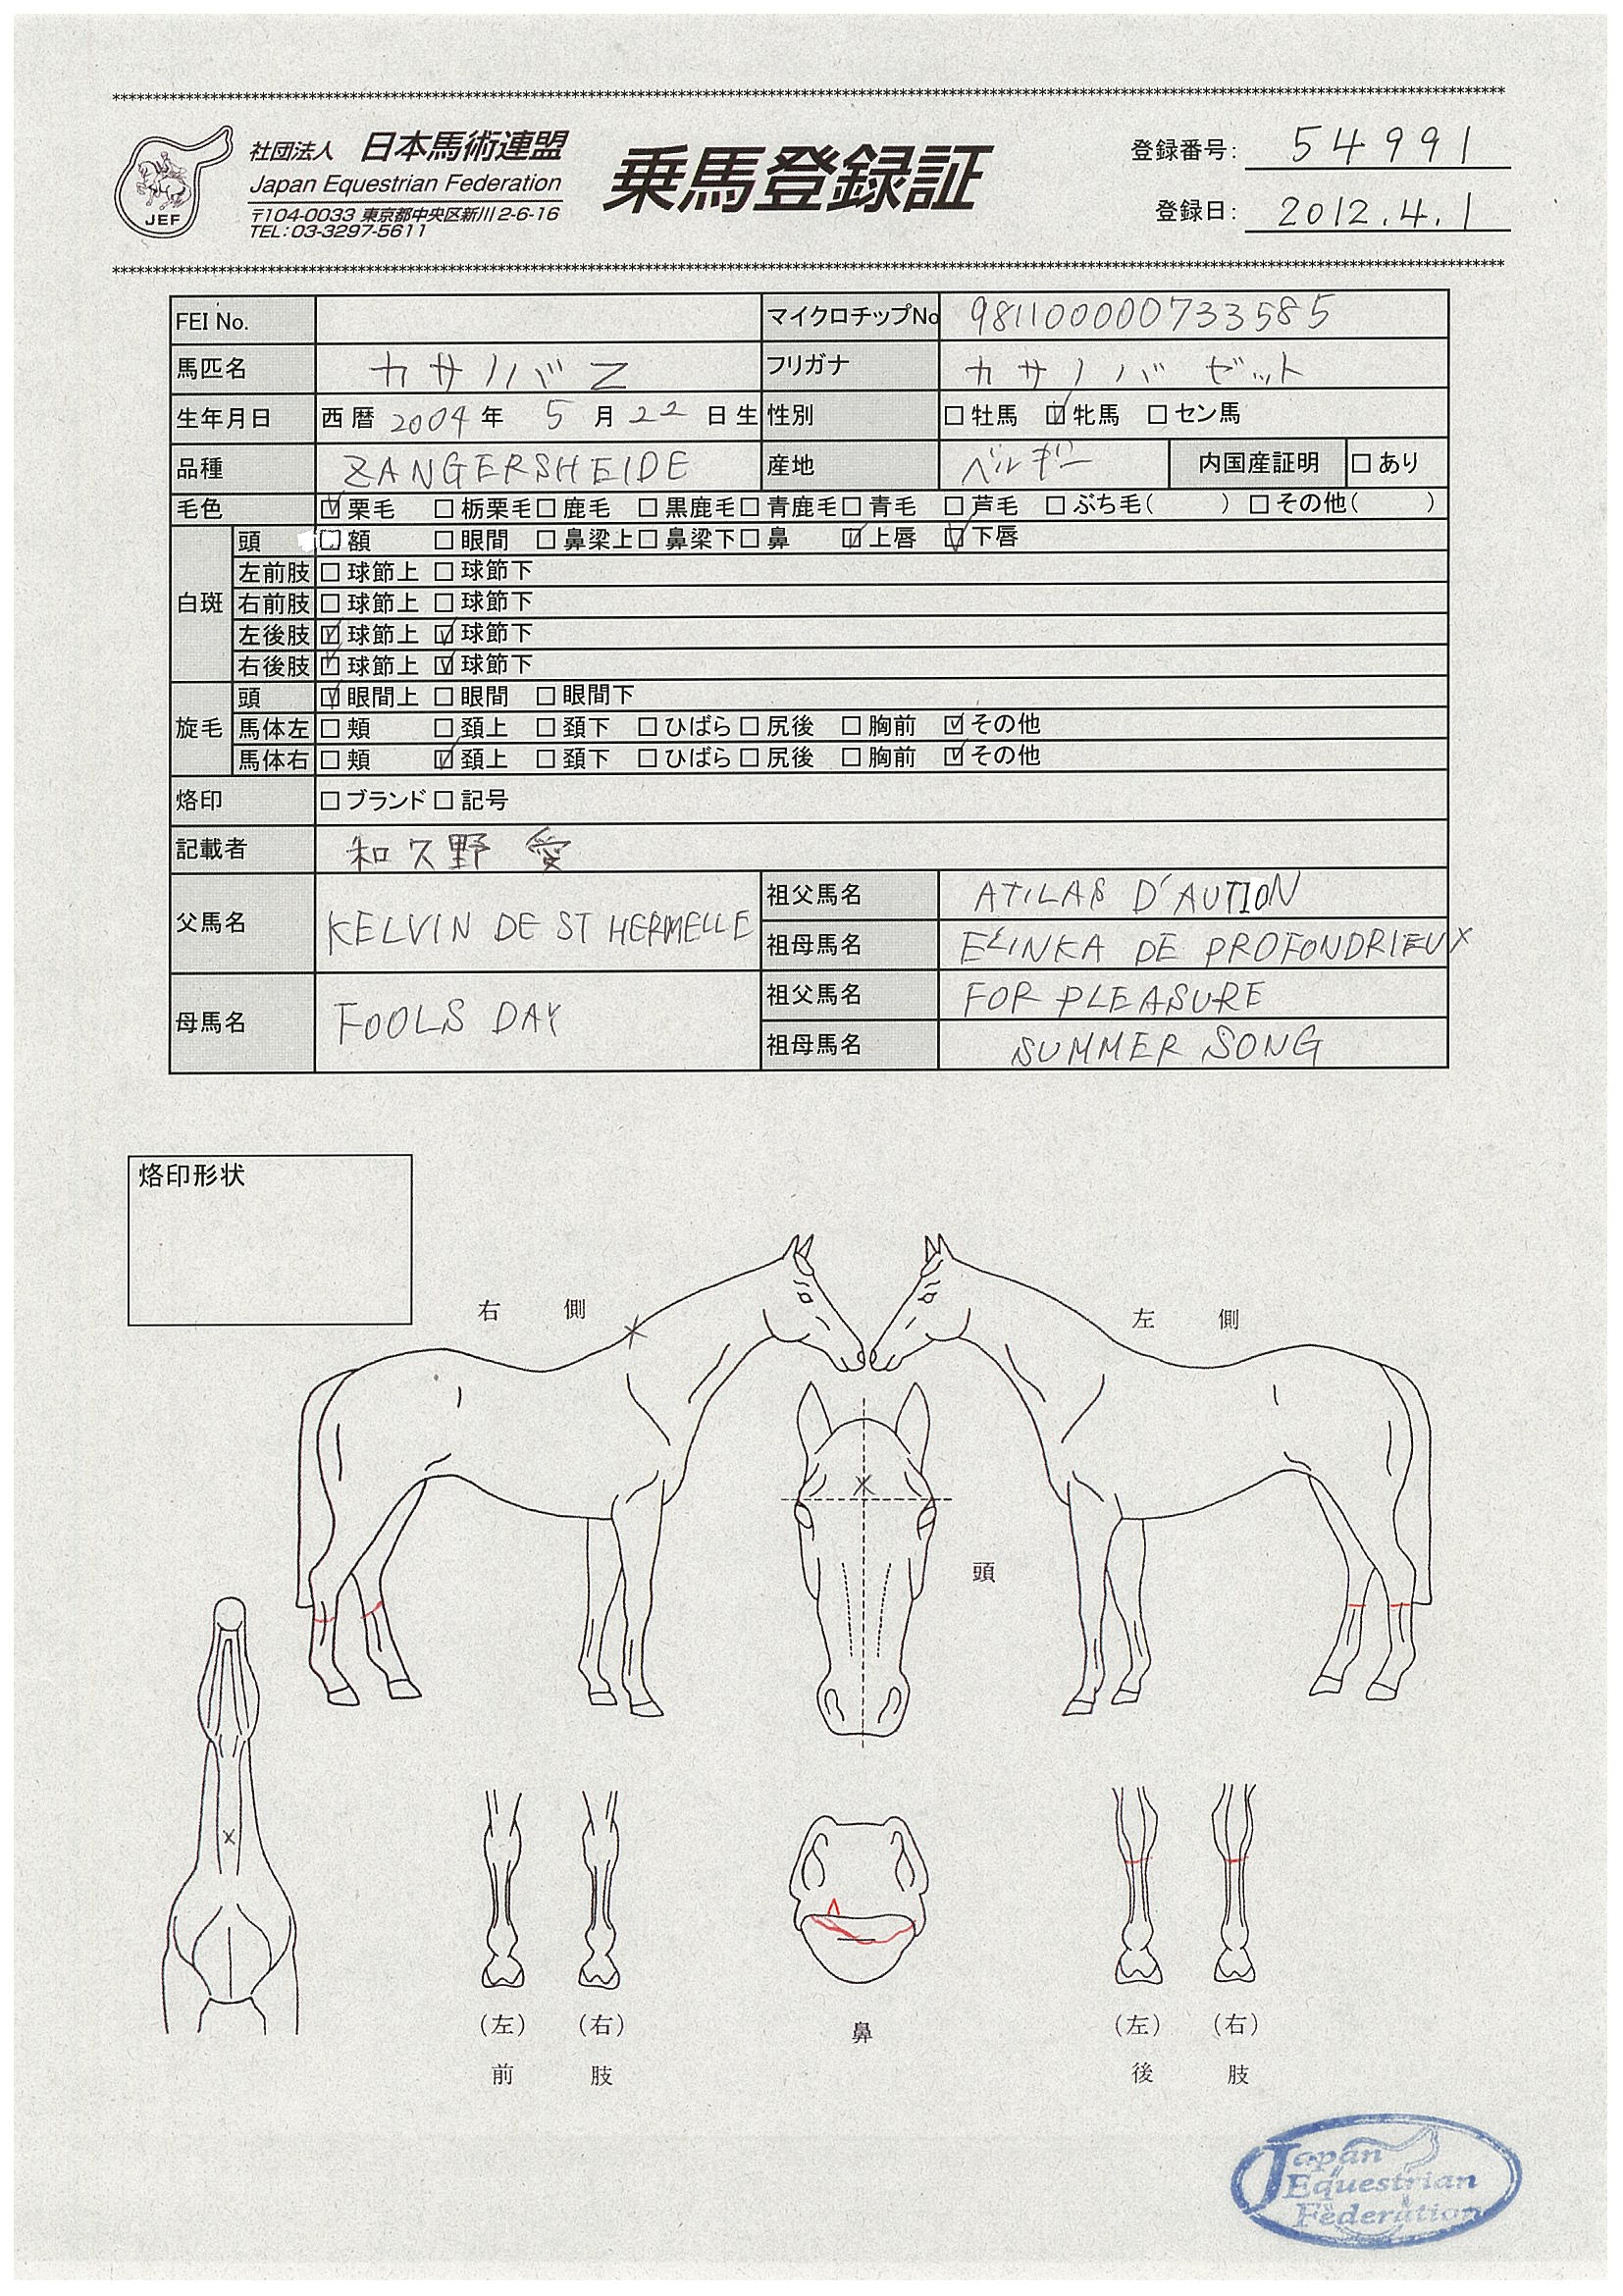 ****************************************
社団法人 日本馬術連盟
Japan Equestrian Federation
〒104-0033 東京都中央区新川2-6-16
TEL:03-3297-5611
JEF
乗馬登録証
登録番号: 54991
登録日: 2012.4.1
****************************************
FEI No. マイクロチップNo 981100000733585
馬匹名 カサノバZ フリガナ カサノバ ゼット
生年月日 西暦 2004 年 5 月 22 日生 性別 □牡馬 ☑牝馬 □セン馬
品種 ZANGERSHEIDE 産地 ベルギー 内国産証明 □あり
毛色 ☑栗毛 □栃栗毛 □鹿毛 □黒鹿毛 □青鹿毛 □青毛 □芦毛 □ぶち毛( ) □その他( )
白斑
頭 □額 □眼間 □鼻梁上 □鼻梁下 □鼻 ☑上唇 ☑下唇
左前肢 □球節上 □球節下
右前肢 □球節上 □球節下
左後肢 ☑球節上 ☑球節下
右後肢 ☑球節上 ☑球節下
旋毛
頭 ☑眼間上 □眼間 □眼間下
馬体左 □頬 □頚上 □頚下 □ひばら □尻後 □胸前 ☑その他
馬体右 □頬 ☑頚上 □頚下 □ひばら □尻後 □胸前 ☑その他
烙印 □ブランド □記号
記載者 和久野 愛
父馬名 KELVIN DE ST HERMELLE
祖父馬名 ATILAS D'AUTION
祖母馬名 ELINKA DE PROFONDRIEUX
母馬名 FOOLS DAY
祖父馬名 FOR PLEASURE
祖母馬名 SUMMER SONG
烙印形状
右 側
左 側
頭
(左) (右)
前 肢
鼻
(左) (右)
後 肢
Japan
Equestrian
Federation